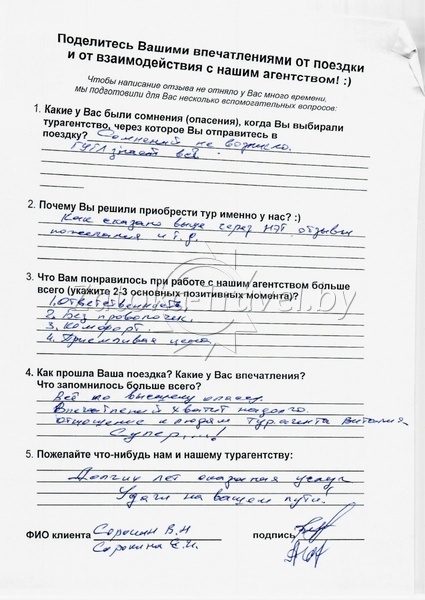 Поделитесь Вашими впечатлениями от поездки
и от взаимодействия с нашим агентством! :)
Чтобы написание отзыва не отняло у Вас много времени,
мы подготовили для Вас несколько вспомогательных вопросов:
1. Какие у Вас были сомнения (опасения), когда Вы выбирали
турагентство, через которое Вы отправитесь в
поездку? Сомнений не возникло.
ГУГЛ знает всё.
2. Почему Вы решили приобрести тур именно у нас? :)
Как сказано выше через НЭТ. отзывы
пожелания и т.д.
3. Что Вам понравилось при работе с нашим агентством больше
всего (укажите 2-3 основных позитивных момента)?
1. Ответственность
2. Без проволочек.
3. Комфорт.
4. Приемлемая цена
4. Как прошла Ваша поездка? Какие у Вас впечатления?
Что запомнилось больше всего?
Всё по высшему классу.
Впечатлений хватит надолго.
Отношение к людям турагента Виталия
Супер...!
5. Пожелайте что-нибудь нам и нашему турагентству:
Долгих лет оказания услуг
Удачи на вашем пути.
ФИО клиента Сорокин В.Н подпись
Сорокина Е.И.
travel.by